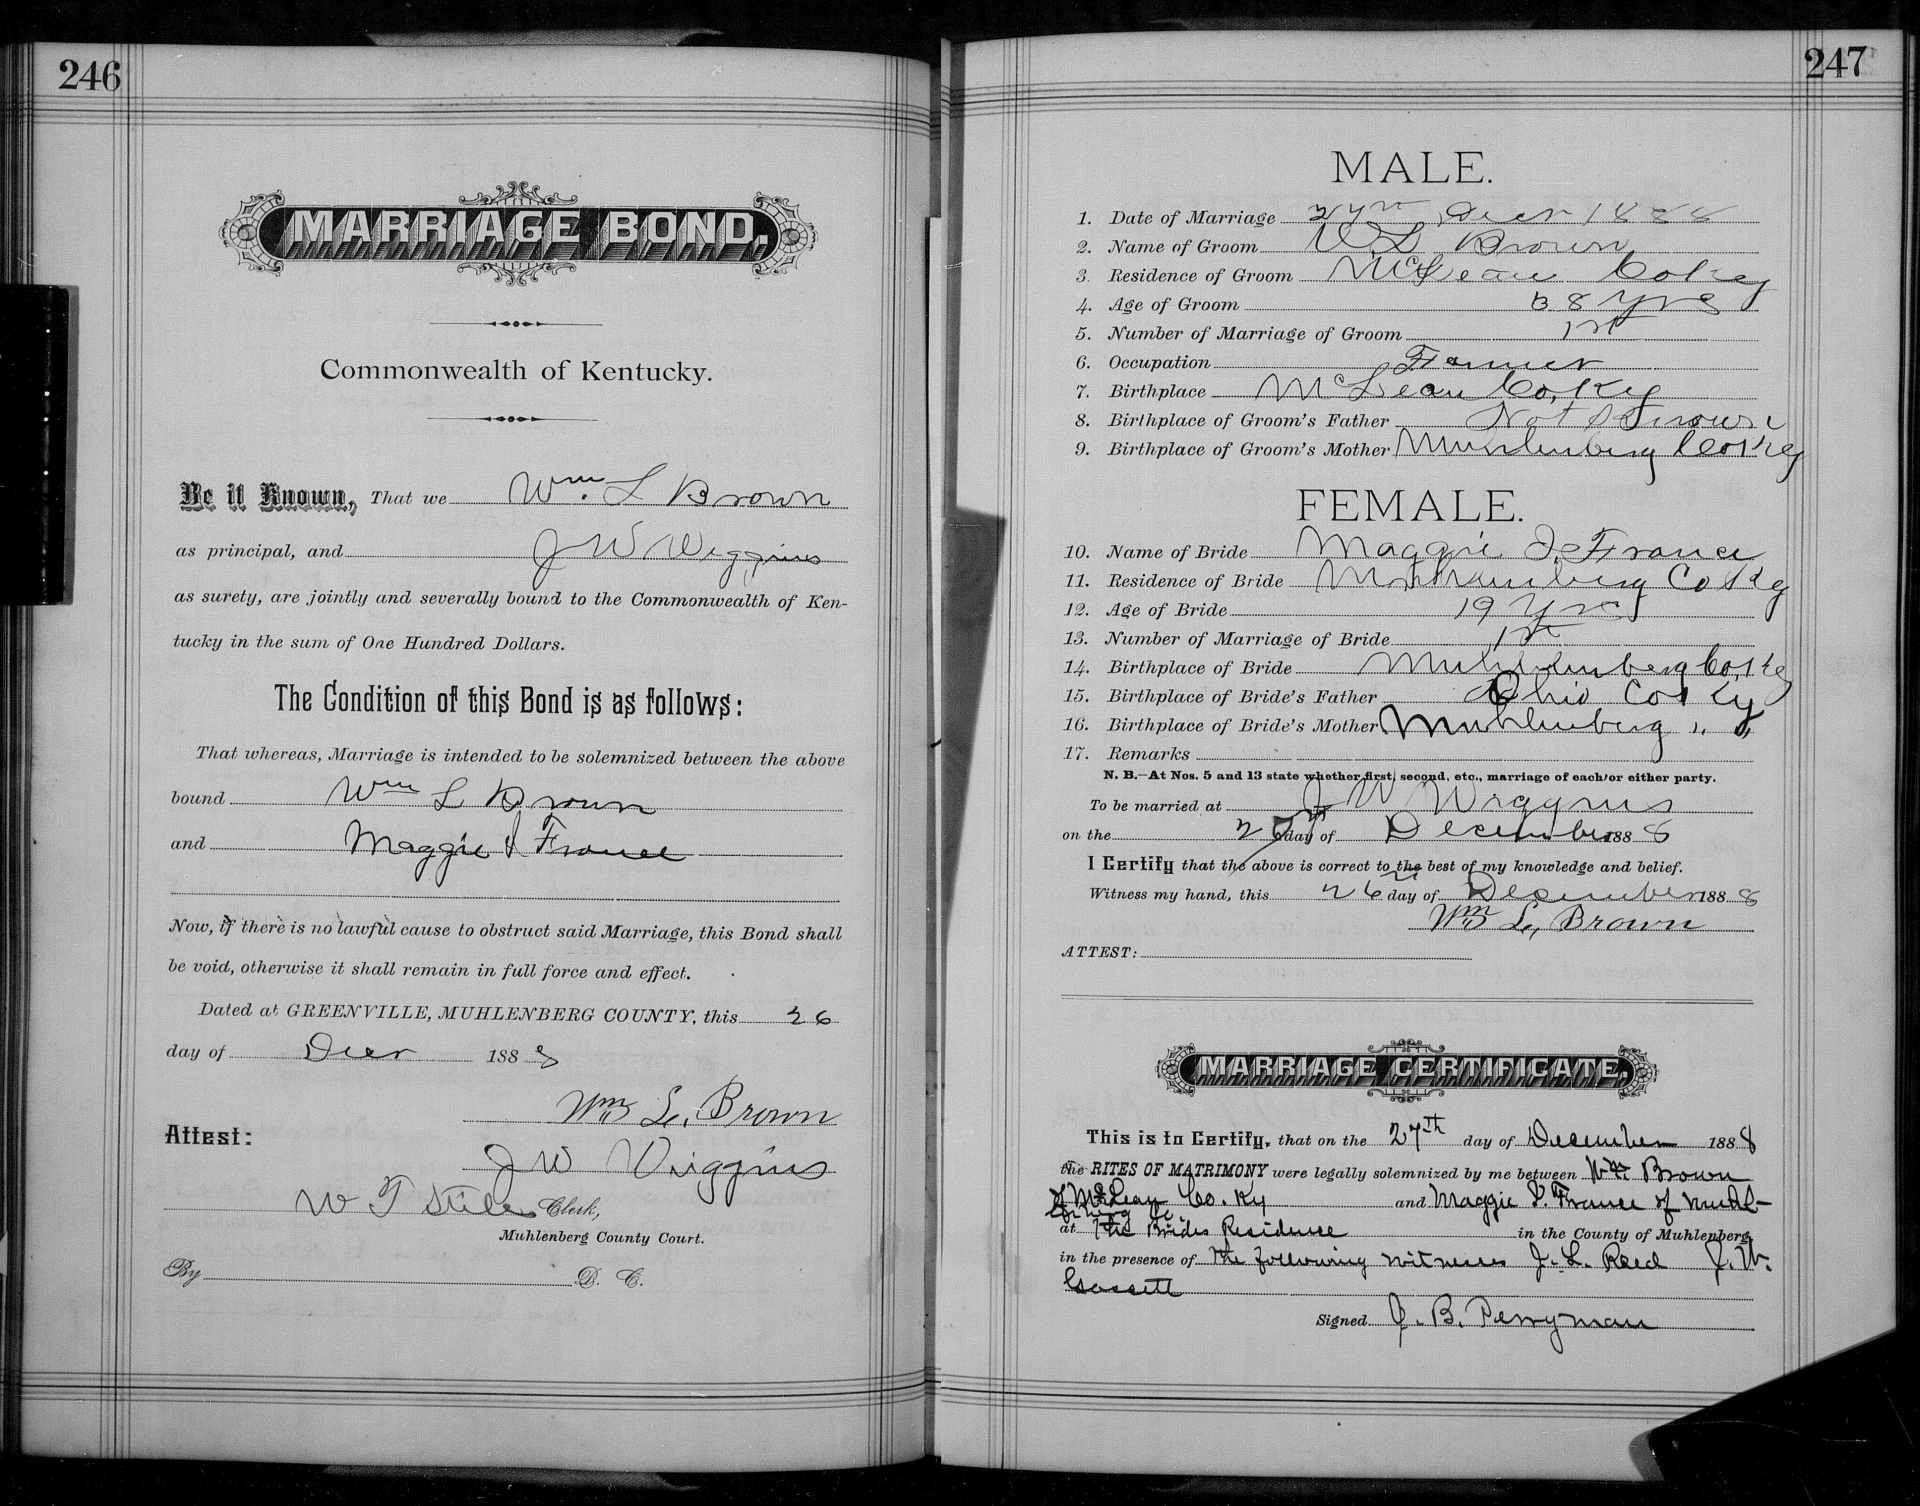 246
MARRIAGE BOND.
Commonwealth of Kentucky.
Be it Known, That we Wm. L Brown
as principal, and J W Wiggins
as surety, are jointly and severally bound to the Commonwealth of Ken-
tucky in the sum of One Hundred Dollars.
The Condition of this Bond is as follows:
That whereas, Marriage is intended to be solemnized between the above
bound Wm L Brown
and Maggie I France
Now, if there is no lawful cause to obstruct said Marriage, this Bond shall
be void, otherwise it shall remain in full force and effect.
Dated at GREENVILLE, MUHLENBERG COUNTY, this 26
day of Decr 1888
Wm L, Brown
Attest:
J W Wiggins
W T Stiles Clerk,
Muhlenberg County Court.
By D. C.
247
MALE.
1. Date of Marriage 27th Decr 1888
2. Name of Groom W L Brown
3. Residence of Groom McLean Co Ky
4. Age of Groom 38 yrs
5. Number of Marriage of Groom 1st
6. Occupation Farmer
7. Birthplace McLean Co, Ky
8. Birthplace of Groom's Father Not Known
9. Birthplace of Groom's Mother Muhlenberg Co Ky
FEMALE.
10. Name of Bride Maggie I. France
11. Residence of Bride Muhlenberg Co Ky
12. Age of Bride 19 yrs
13. Number of Marriage of Bride 1st
14. Birthplace of Bride Muhlenberg Co, Ky
15. Birthplace of Bride's Father Ohio Co Ky
16. Birthplace of Bride's Mother Muhlenberg " "
17. Remarks
N. B.—At Nos. 5 and 13 state whether first, second, etc., marriage of each or either party.
To be married at J W Wiggins
on the 27th day of December 1888
I Certify that the above is correct to the best of my knowledge and belief.
Witness my hand, this 26 day of December 1888
Wm L, Brown
ATTEST:
MARRIAGE CERTIFICATE.
This is to Certify, that on the 27th day of December 1888
the RITES OF MATRIMONY were legally solemnized by me between Wm Brown
of McLean Co. Ky and Maggie I. France of Muhl-
enberg Co.
at The Brides Residence in the County of Muhlenberg
in the presence of the following witnesses J. L. Reed J. W.
Gossett
Signed J. B. Perryman